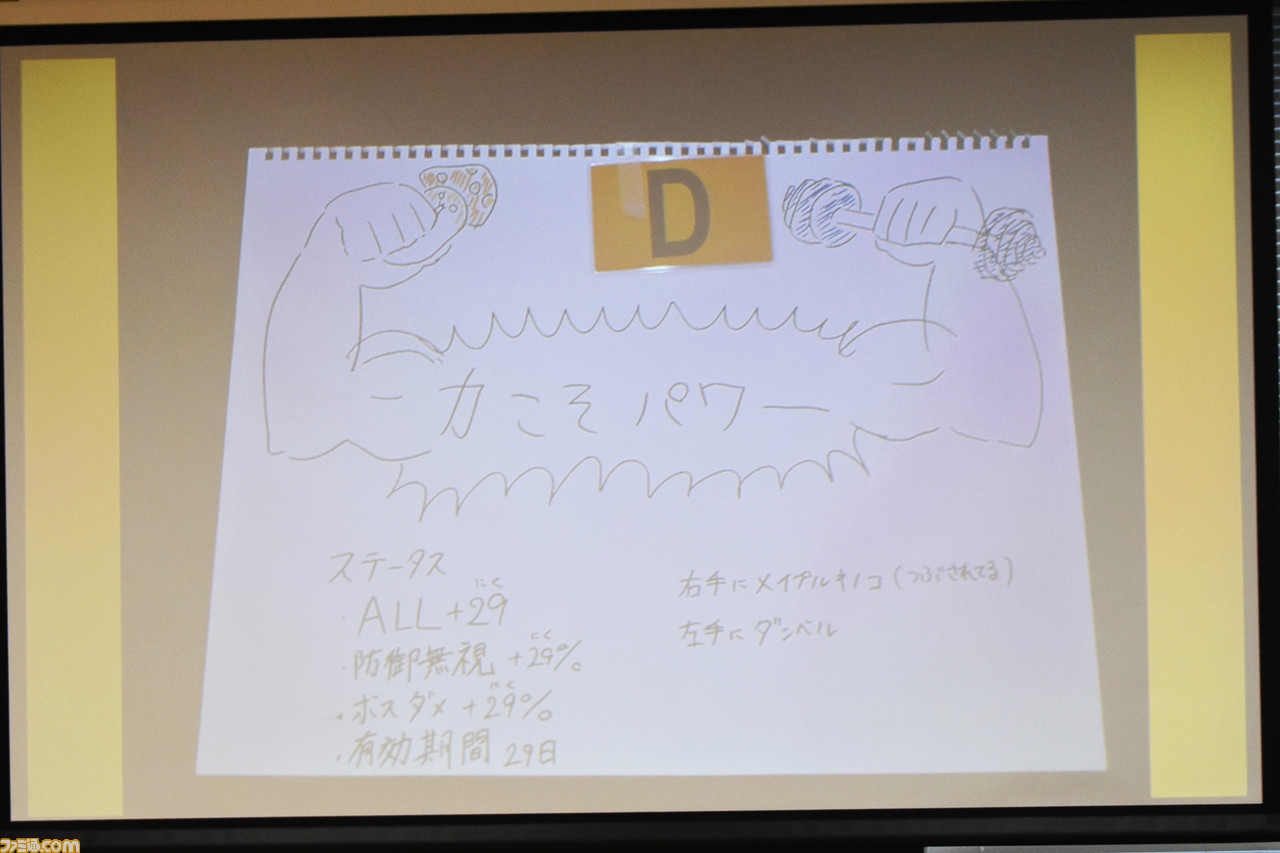 D
力こそパワー
ステータス
・ALL+29
にく
・防御無視 +29%
にく
・ボスダメ +29%
にく
・有効期間 29日
右手にメイプルキノコ(つぶされてる)
左手にダンベル
ファミ通.com